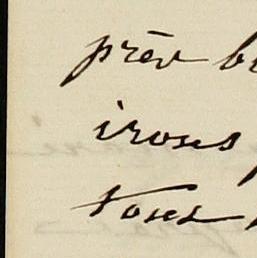 prēv
irons
tous